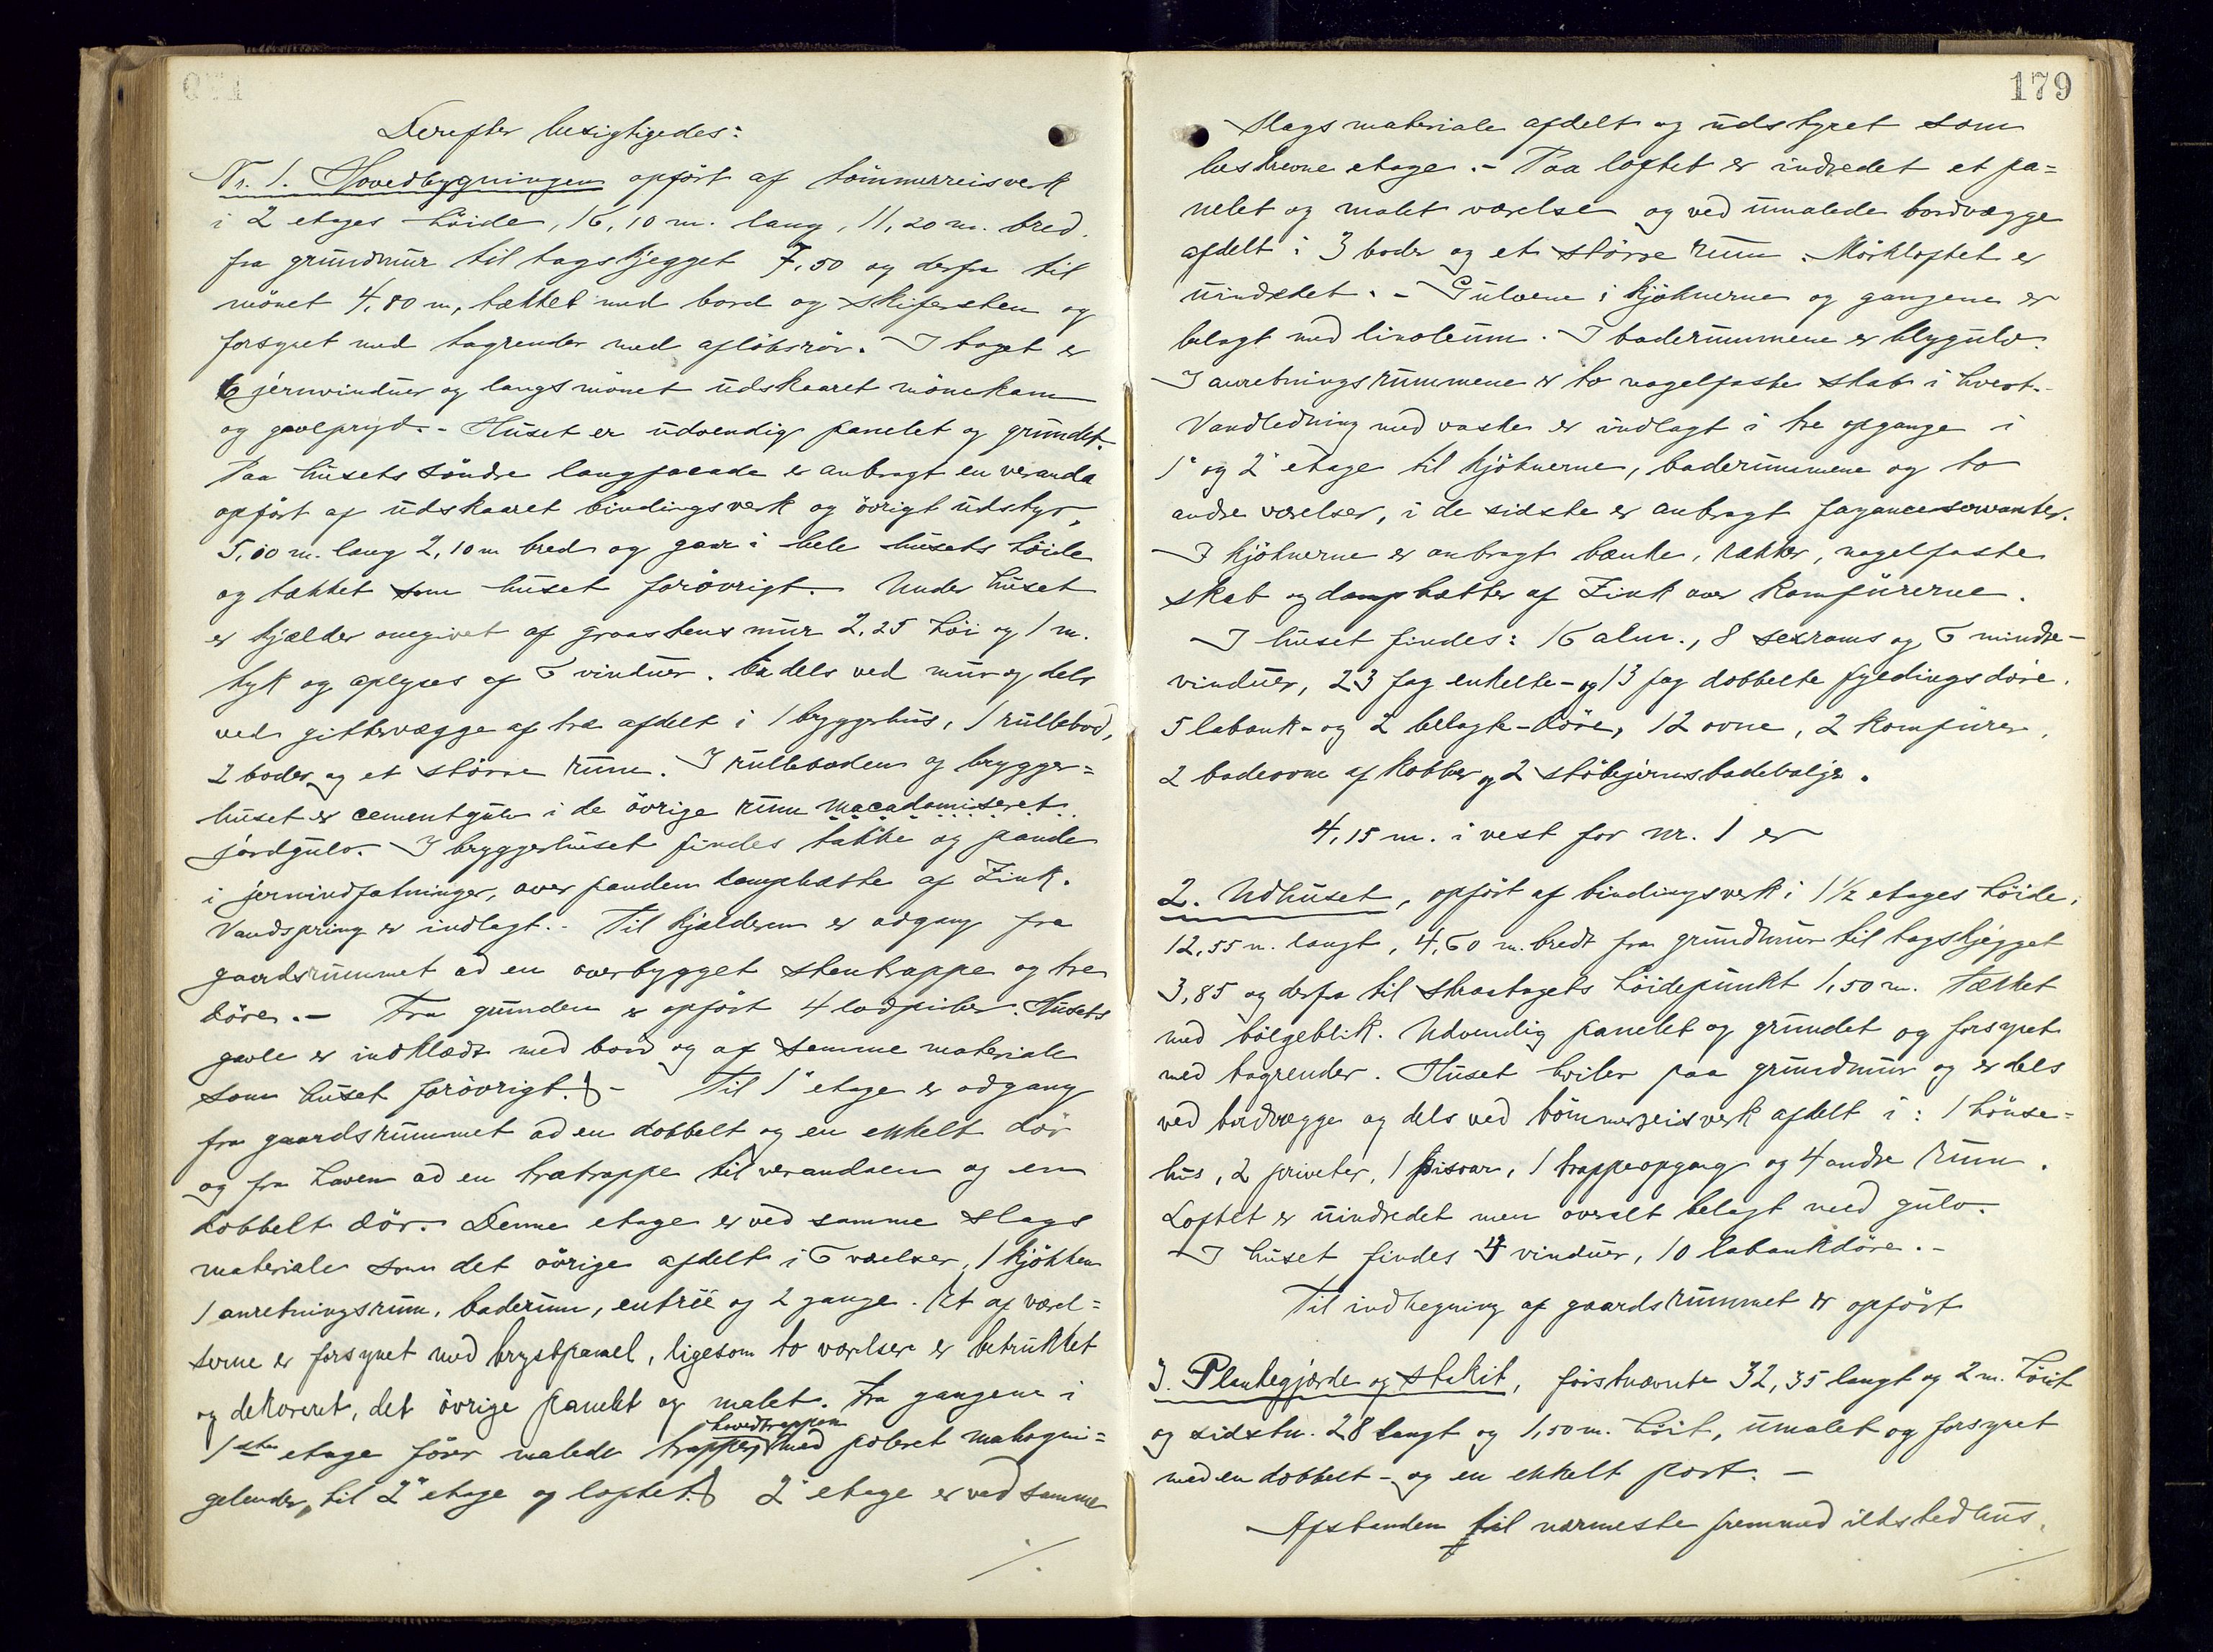 Derefter besigtigedes:
Nr. 1. Hovedbygningen opført af tømmerreisverk
i 2 etages høide, 16,10 m. lang, 11,20 m. bred.
fra grundmur til tagskjegget 7,50 og derfra til
mønet 4,80 m, tækket med bord og skifersten og
forsynet med tagrender med afløbsrør. I taget er
6 jernvinduer og langs mønet udskaaret mønekam
og gavlpryd. - Huset er udvendig panelet og grundet.
Paa husets søndre langfacade er anbragt en veranda
opført af udskaaret bindingsverk og øvrigt udstyr,
5,00 m. lang 2,10 m bred og gaar i hele husets høide
og tækket som huset forøvrigt. Under huset
er kjælder omgivet af graastens mur 2,25 høi og 1 m.
tyk og oplyses af 6 vinduer. Er dels ved mur og dels
ved gittervægge af træ afdelt i 1 bryggerhus, 1 rullebod,
2 boder og et større rum. I rulleboden og brygger=
huset er cementgulv i de øvrige rum macadamiseret
jordgulv. I bryggerhuset findes takke og pande
i jernindfatninger, over panden damphætte af Zink.
Vandspring er indlagt. - Til kjælderen er adgang fra
gaardsrummet ad en overbygget stentrappe og tre
døre. - Fra grunden er opført 4 lodpiber. Husets
gavle er indklædt med bord og af samme materiale
som huset forøvrigt. - Til 1' etage er adgang
fra gaardsrummet ad en dobbelt og en enkelt dør
og fra haven ad en trætrappe til verandaen og en
dobbelt dør. Denne etage er ved samme slags
materiale som det øvrige afdelt i 6 værelser, 1 kjøkken
1 anretningsrum, baderum, entrée og 2 gange. Et af værel=
serne er forsynet med brystpanel, ligesom to værelser er betrukket
og dekoreret, det øvrige panelet og malet. Fra gangene i
hovedtrappen
1ste etage fører malede trapper, med poleret mahogni=
gelender, til 2' etage og loftet. 2' etage er ved samme
./.
179
slags materiale afdelt og udstyret som
beskrevne etage. - Paa loftet er indredet et pa=
nelet og malet værelse og ved umalede bordvægge
afdelt i 3 boder og et større rum. Mørkloftet er
uindredet. - Gulvene i kjøknerne og gangene er
belagt med linoleum. I baderummene er blygulv.
I anretningsrummene er to nagelfaste skab i hvert.
Vandledning med vaske er indlagt i tre opgange i
1' og 2' etage til kjøknerne, baderummene og to
andre værelser, i de sidste er anbragt fayanceservanter.
I kjøknerne er anbragt bænke, rækker, nagelfaste
skab og damphætter af Zink over komfurerne.
I huset findes: 16 alm., 8 sexrams og 6 mindre-
vinduer, 23 fag enkelte- og 13 fag dobbelte fyldingsdøre.
5 labank- og 2 belagte-døre, 12 ovne, 2 komfurer,
2 badeovne af kobber og 2 støbejernsbadebaljer.
4,15 m. i vest for nr. 1 er
2. Udhuset, opført af bindingsverk i 1 1/2 etages høide,
12,55 m. langt, 4,60 m. bredt fra grundmur til tagskjegget
3,85 og derfra til skraatagets høidepunkt 1,50 m. Tækket
med bølgeblik. Udvendig panelet og grundet og forsynet
med tagrender. Huset hviler paa grundmur og er dels
ved bordvægge og dels ved tømmerreisverk afdelt i: 1 hønse=
hus, 2 priveter, 1 pissoar, 1 trappeopgang og 4 andre rum.
Loftet er uindredet men overalt belagt med gulv.
I huset findes 4 vinduer, 10 labankdøre. -
Til indhegning af gaardsrummet er opført
3. Plankegjærde og stakit, førstnævnte 32,35 langt og 2 m. høit
og sidstn. 28 langt og 1,50 m. høit, umalet og forsynet
med en dobbelt- og en enkelt port. -
Afstanden til nærmeste fremmed ildstedhus.
./.